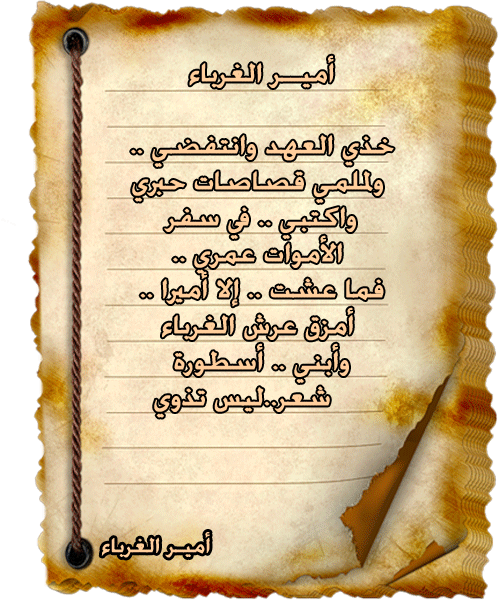 أميــر الغرباء
خذي العهد وانتفضي ..
ولملمي قصاصات حبري
واكتبي .. في سفر
الأموات عمري ..
فما عشت .. إلا أميرا ..
أمزق عرش الغرباء
وأبني .. أسطورة
شعر..ليس تذوي
أميــر الغرباء